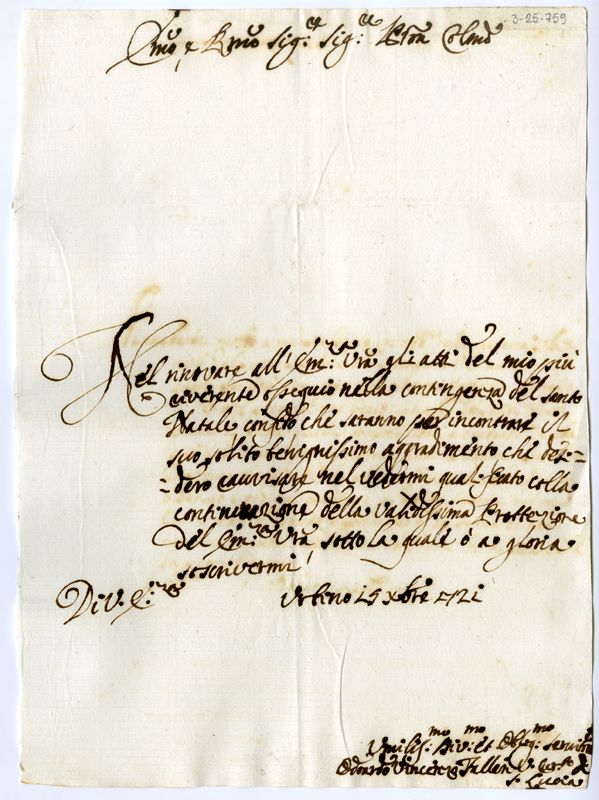 3-25-759
Em̃o, e Rm̃o Sig.re Sig.re Pron Colmo
Nel rinovare all' Em.za Vrã gli atti del mio più
riverente ossequio nella contingenza del santo
Natale confido che saranno per incontrare il
suo solito benignissimo aggradimento che desi=
=dero ravvisare nel vedermi qualificato colla
continuazione della validissima Prottezione
del Em.za Vrã sotto la quale ò a gloria
soscrivermi
Di V. E.za Urbino 25 Xbre 1721
Umiliss.mo Div.mo et Obblig.mo Servitore
Odoardo Vincenzo
S. Lucia